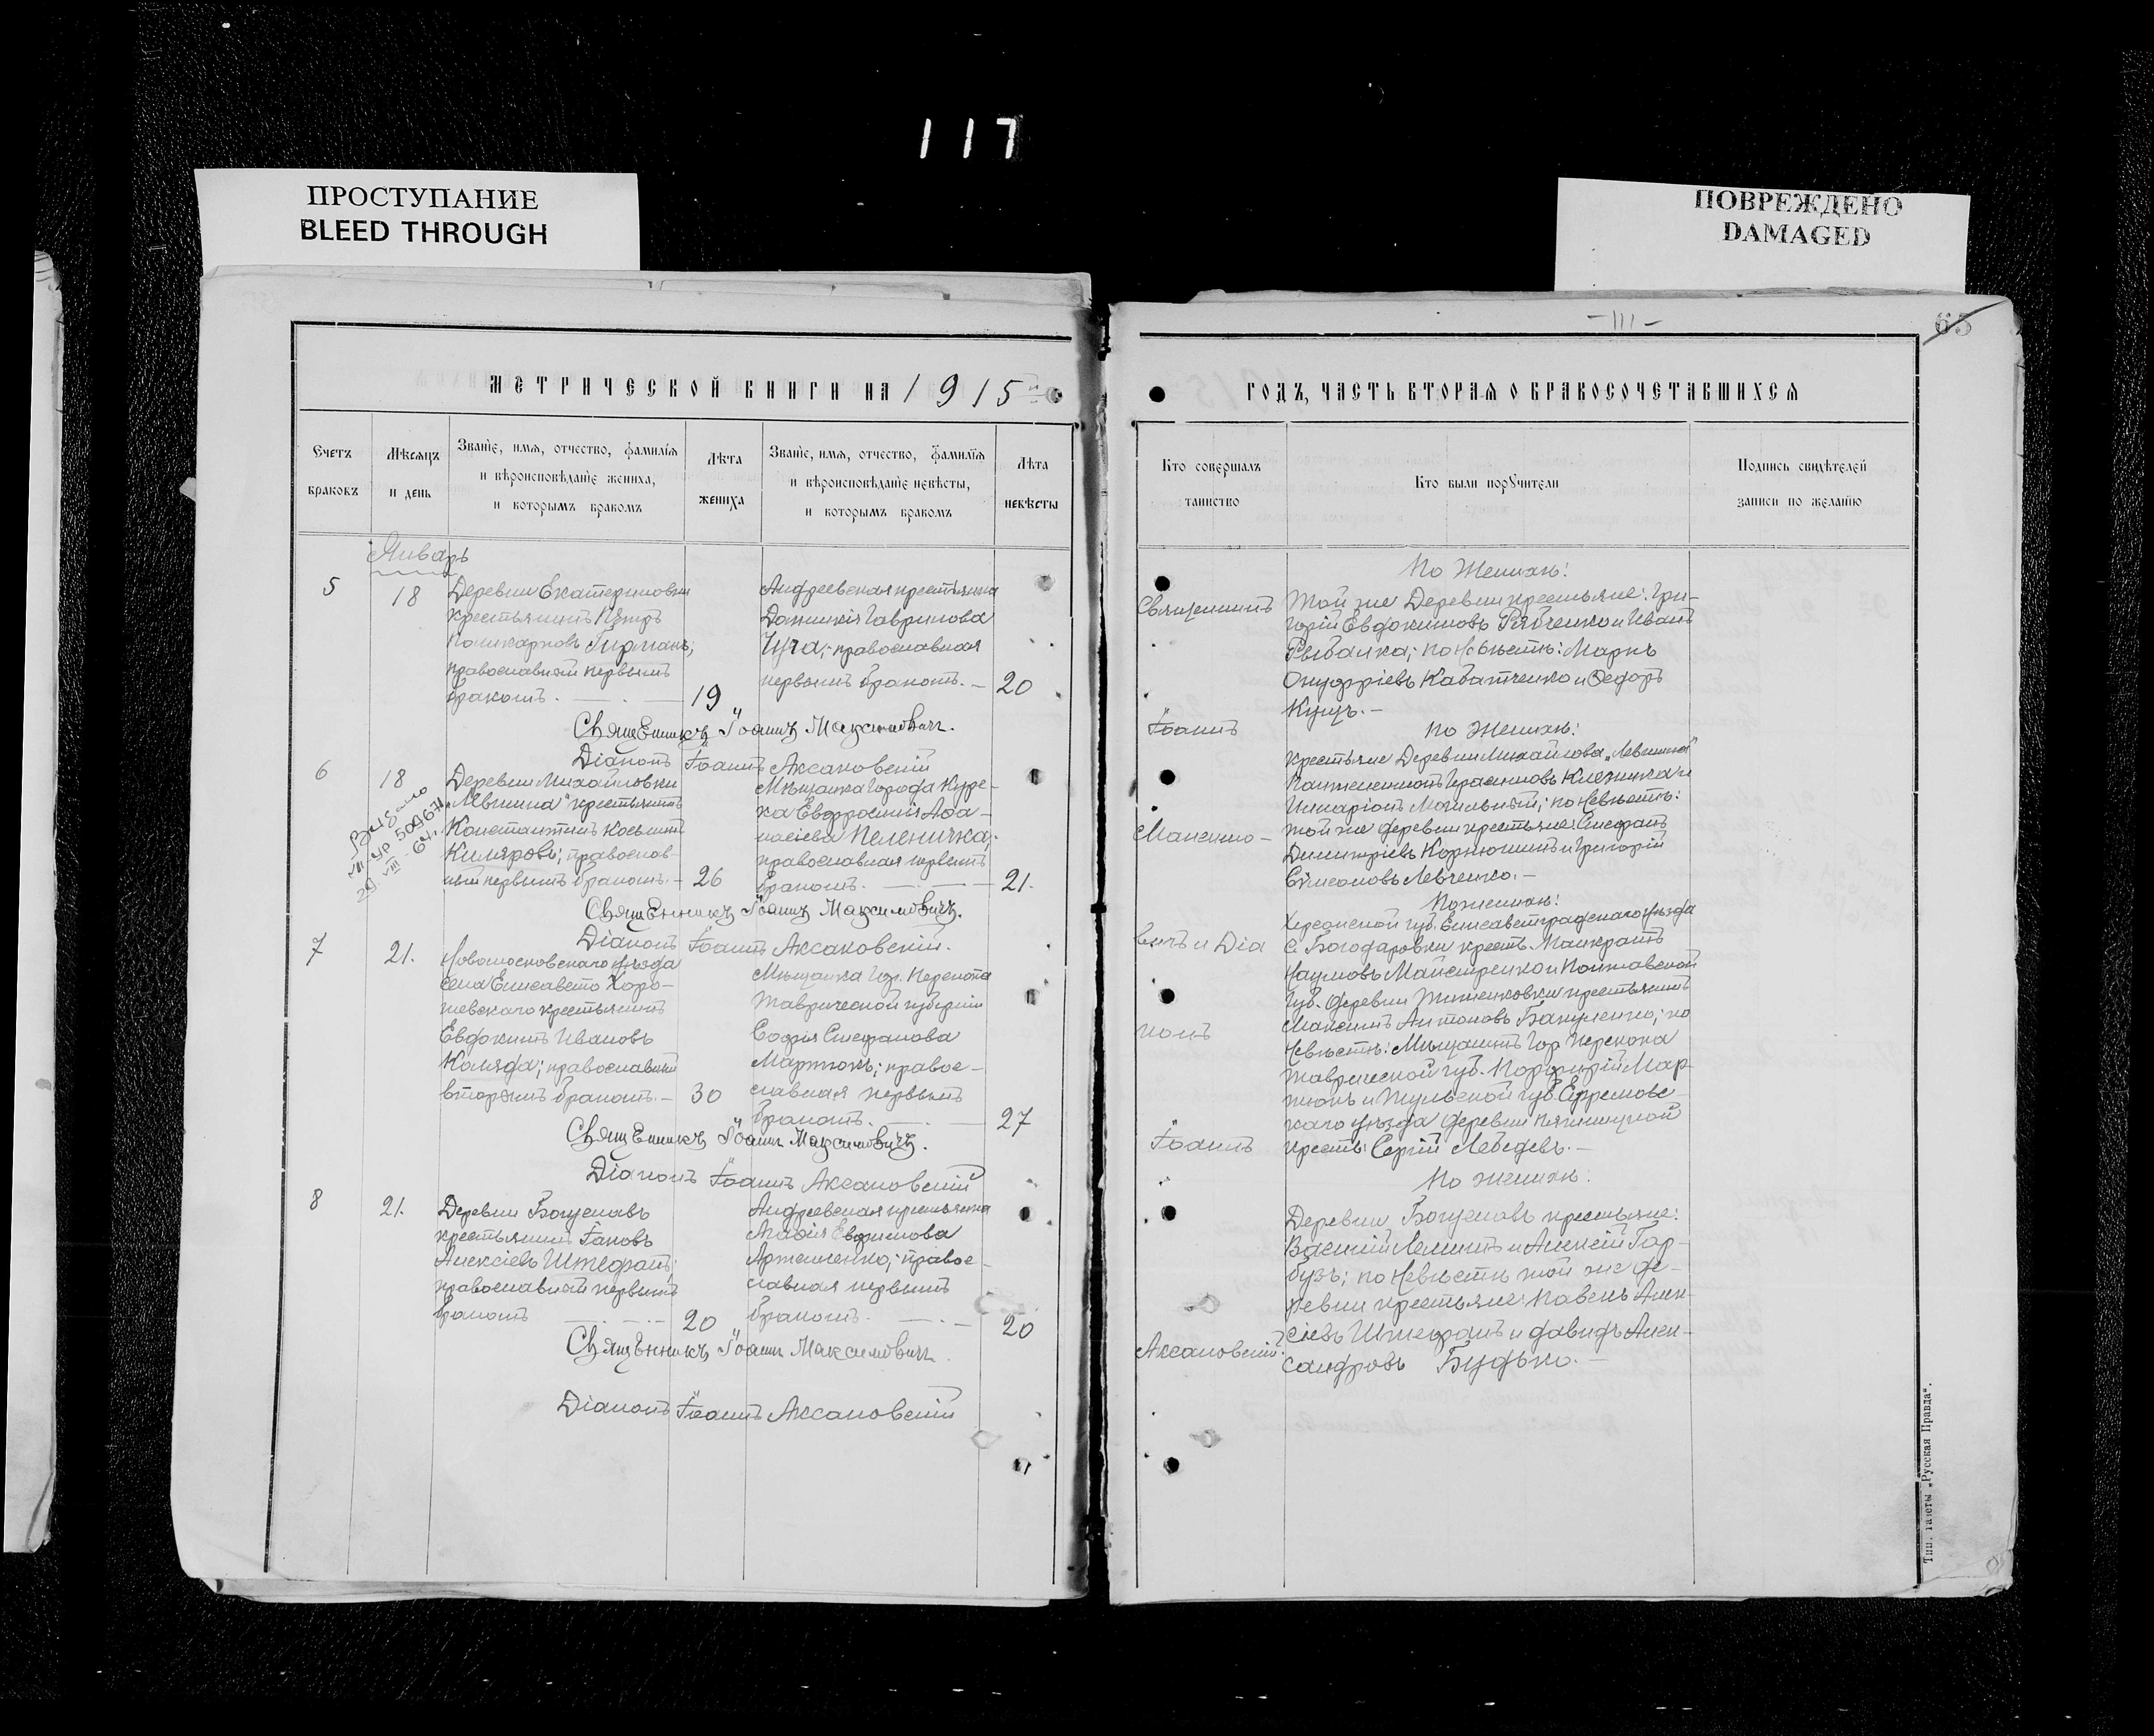 117
ПРОСТУПАНИЕ
BLEED THROUGH
ПОВРЕЖДЕНО
DAMAGED
МЕТРИЧЕСКОЙ КНИГИ НА 1915
Счетъ браковъ
Мѣсяцъ и день
Званіе, имя, отчество, фамилія
и вѣроисповѣданіе жениха,
и которымъ бракомъ
Лѣта жениха
Званіе, имя, отчество, фамилія
и вѣроисповѣданіе невѣсты,
и которымъ бракомъ
Лѣта невѣсты
Январь
5
18
Деревни Екатериновки
крестьянинъ Петръ
Поликарповъ Гирманъ;
православный первымъ
бракомъ. —
19
Андреевская крестьянка
Даникія Гаврилова
Цуга; православная
первымъ бракомъ. —
20
Священникъ Іоаннъ Максимовичъ.
Діаконъ Іоаннъ Аксаковскій
6
18
Выдано
509671
29 VIII 64
Деревни Михайловки
„Левшина" крестьянинъ
Константинъ Косьминъ
Киляровъ; православ-
ный первымъ бракомъ. —
26
Мѣщанка города
Евфросинія Афа-
насіева Пеленичка;
православная первымъ
бракомъ. —
21.
Священникъ Іоаннъ Максимовичъ.
Діаконъ Іоаннъ Аксаковскій.
7
21.
Новомосковскаго уѣзда
села Елисавето Хоро-
шевскаго крестьянинъ
Евдокимъ Ивановъ
Коляда; православный
вторымъ бракомъ. —
30
Мѣщанка гор. Перекопа
Таврической губерніи
Софія Стефанова
Мартюкъ; право-
славная первымъ
бракомъ. —
27
Священникъ Іоаннъ Максимовичъ.
Діаконъ Іоаннъ Аксаковскій
8
21.
Деревни Богуславъ
крестьянинъ Іаковъ
Алексіевъ Штефанъ;
православный первымъ
бракомъ
20
Андреевская крестьянка
Марія Евфимова
Артеменко; право-
славная первымъ
бракомъ.
20
Священникъ Іоаннъ Максимовичъ.
Діаконъ Іоаннъ Аксаковскій
— 111 —
65
ГОДЪ, ЧАСТЬ ВТОРАЯ О БРАКОСОЧЕТАВШИХСЯ
Кто совершалъ таинство
Кто были поручители
Подпись свидѣтелей
записи по желанію
Священникъ
Іоаннъ
Максимо-
вичъ и Діа
конъ
Іоаннъ
Аксаковскій.
По Женихѣ:
Той же Деревни крестьяне: Гри-
горій Евдокимовъ Рябченко и Иванъ
Рыбалка; по Невѣстѣ: Маркъ
Онуфріевъ Кабатченко и Ѳедоръ
Куцъ. —
По Женихѣ:
крестьяне Деревни Михайлова „Левшина"
Пантелеимонъ Герасимовъ и
Илларіонъ Могильный; по Невѣстѣ:
той же деревни крестьяне: Стефанъ
Димитріевъ Корнюшинъ и Григорій
Симеоновъ Левченко. —
По женихѣ:
Херсонской губ. Елисаветградскаго уѣзда
с. Богодаровки крест. Панкратъ
Наумовъ Майстренко и Полтавской
губ. деревни крестьянинъ
Максимъ Антоновъ Бакуленко; по
Невѣстѣ: Мѣщанинъ гор Перекопа
Таврической губ. Порфирій Мар-
тюкъ и Тульской губ. Ефремовс-
каго уѣзда деревни Пятницкой
крест: Сергій Лебедевъ. —
По женихѣ:
Деревни Богуславъ крестьяне:
Василій Лемишъ и Алексій Гар-
бузъ; по Невѣстѣ той же де-
ревни крестьяне: Павелъ Алек-
сіевъ Штефанъ и Давидъ Алек-
сандровъ Будько. —
Тип. газеты „Русская Правда".